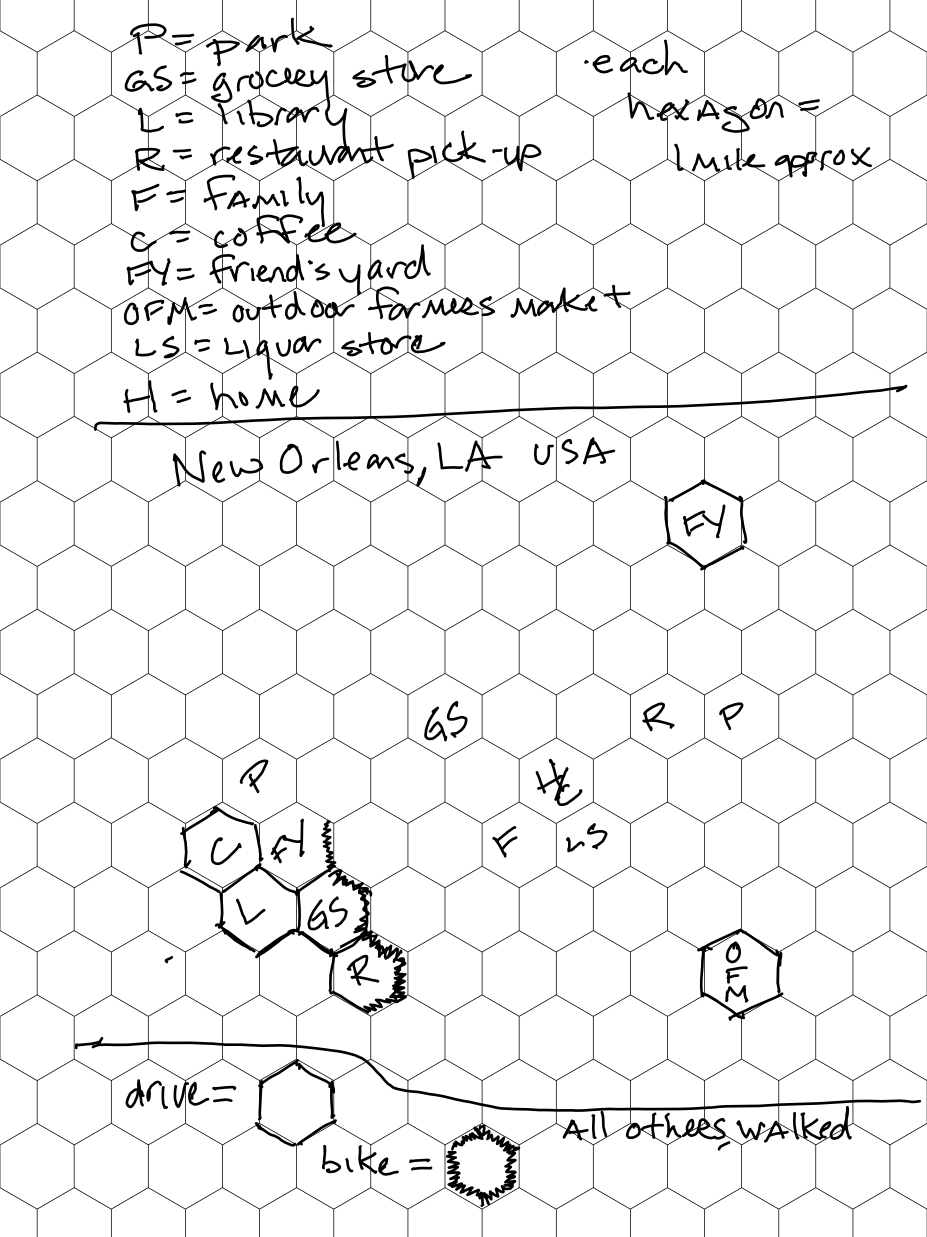 P = park
GS = grocery store
L = library
R = restaurant pick-up
F = family
C = coffee
FY = friend's yard
OFM = outdoor farmers market
LS = Liquor store
H = home
·each
hexagon =
1 mile approx
New Orleans, LA USA
FY
GS
R P
P
H
C
C FY
F LS
L GS
R
O
F
M
drive =
bike =
All others walked